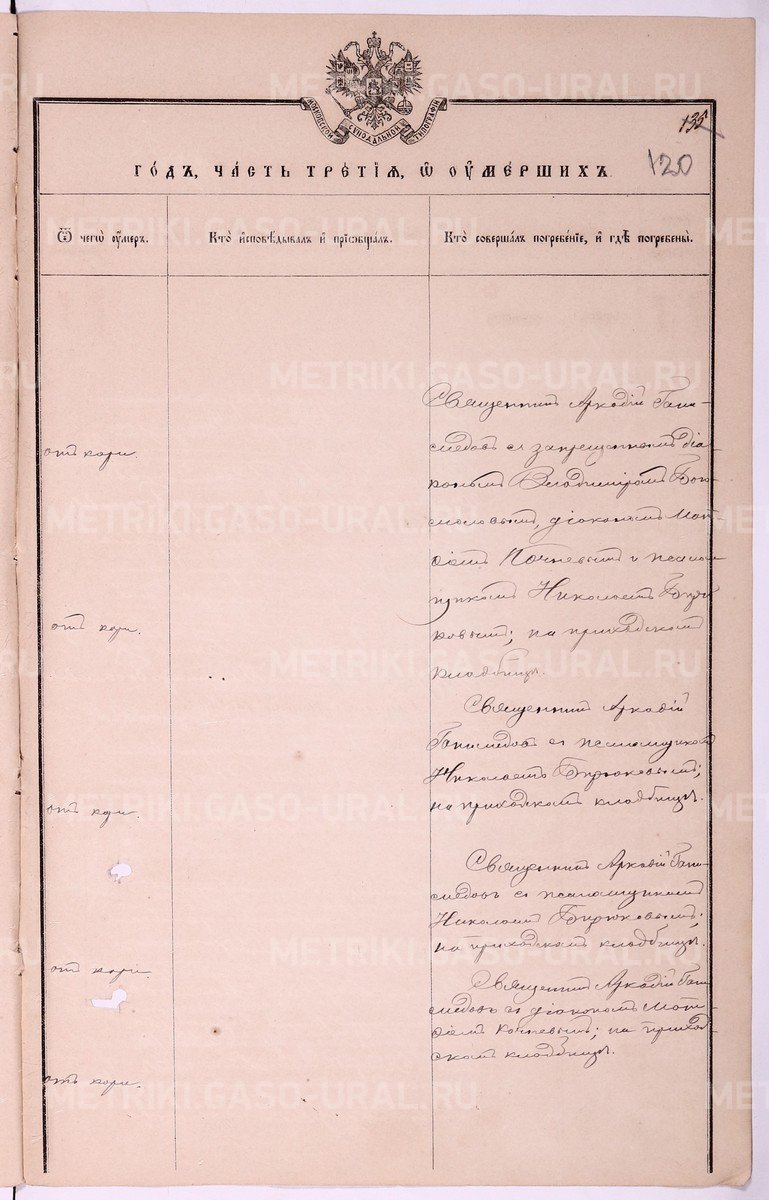 МОСКОВСКОЙ СѴНОДАЛЬНОЙ ТИПОГРАФІИ
135
120
ГОДЪ, ЧАСТЬ ТРЕТІЯ, Ѡ ОУМЕРШИХЪ
Ѿ чегѡ оумеръ.
Кто исповѣдывалъ и пріобщалъ.
Кто совершалъ погребеніе, и гдѣ погребены.
Священникъ Аркадій Гани-
медовъ съ запрещеннымъ діа-
кономъ Владиміромъ Бого-
молъ
отъ кори.
діакономъ Мат-
ѳіемъ Кочневымъ и псалом-
щикомъ Николаемъ Бирю-
ковымъ; на приходскомъ
кладбищѣ.
отъ кори.
Священникъ Аркадій
Ганимедовъ съ псаломщикомъ
Николаемъ Бирюковымъ;
на приходскомъ кладбищѣ.
отъ кори.
Священникъ Аркадій Гани-
медовъ съ псаломщикомъ
Николаемъ Бирюковымъ;
на приходскомъ кладбищѣ.
отъ кори.
Священникъ Аркадій Гани-
медовъ съ діакономъ Мат-
ѳіемъ Кочневымъ; на приход-
скомъ кладбищѣ.
отъ кори.
METRIKI.GASO-URAL.RU